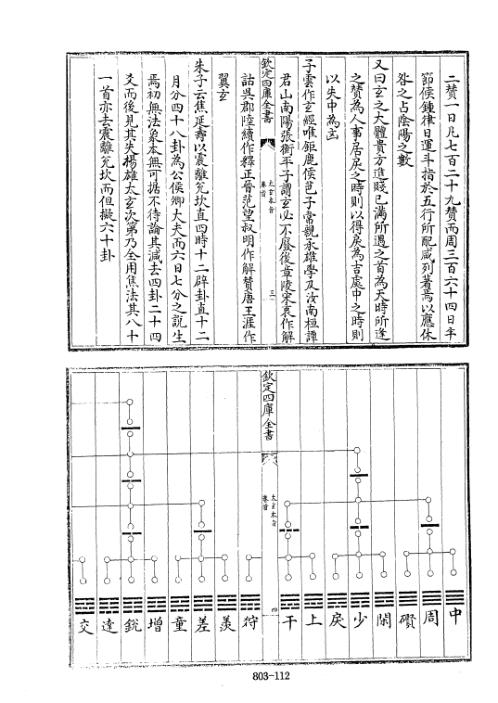 二贊一日凡七百二十九贊而周三百六十四日半
節候鍾律日運斗指於五行所配咸列著焉以應休
咎之占陰陽之數
又曰玄之大體貴方進賤已滿所遇之首為天時所逢
之贊為人事居戾之時則以得戾為吉處中之時則
以失中為凶
子雲作玄經唯鉅鹿侯芭子常親承雄學及汝南桓譚
君山南陽張衡平子謂玄必不廢後章陵宋衷作解
欽定四庫全書
太玄本旨
卷首
三
詁吳郡陸績作釋正晉范望叔明作解贊唐王涯作
翼玄
朱子云焦延壽以震離兊坎直四時十二辟卦直十二
月分四十八卦為公侯卿大夫而六日七分之說生
焉初無法象本無可據不待論其減去四卦二十四
爻而後見其失楊雄太玄次第乃全用焦法其八十
一首亦去震離兊坎而但擬六十卦
中
周
礥
閑
少
戾
上
干
欽定四庫全書
太玄本旨
卷首
四
狩
羡
差
童
增
銳
達
交
803-112